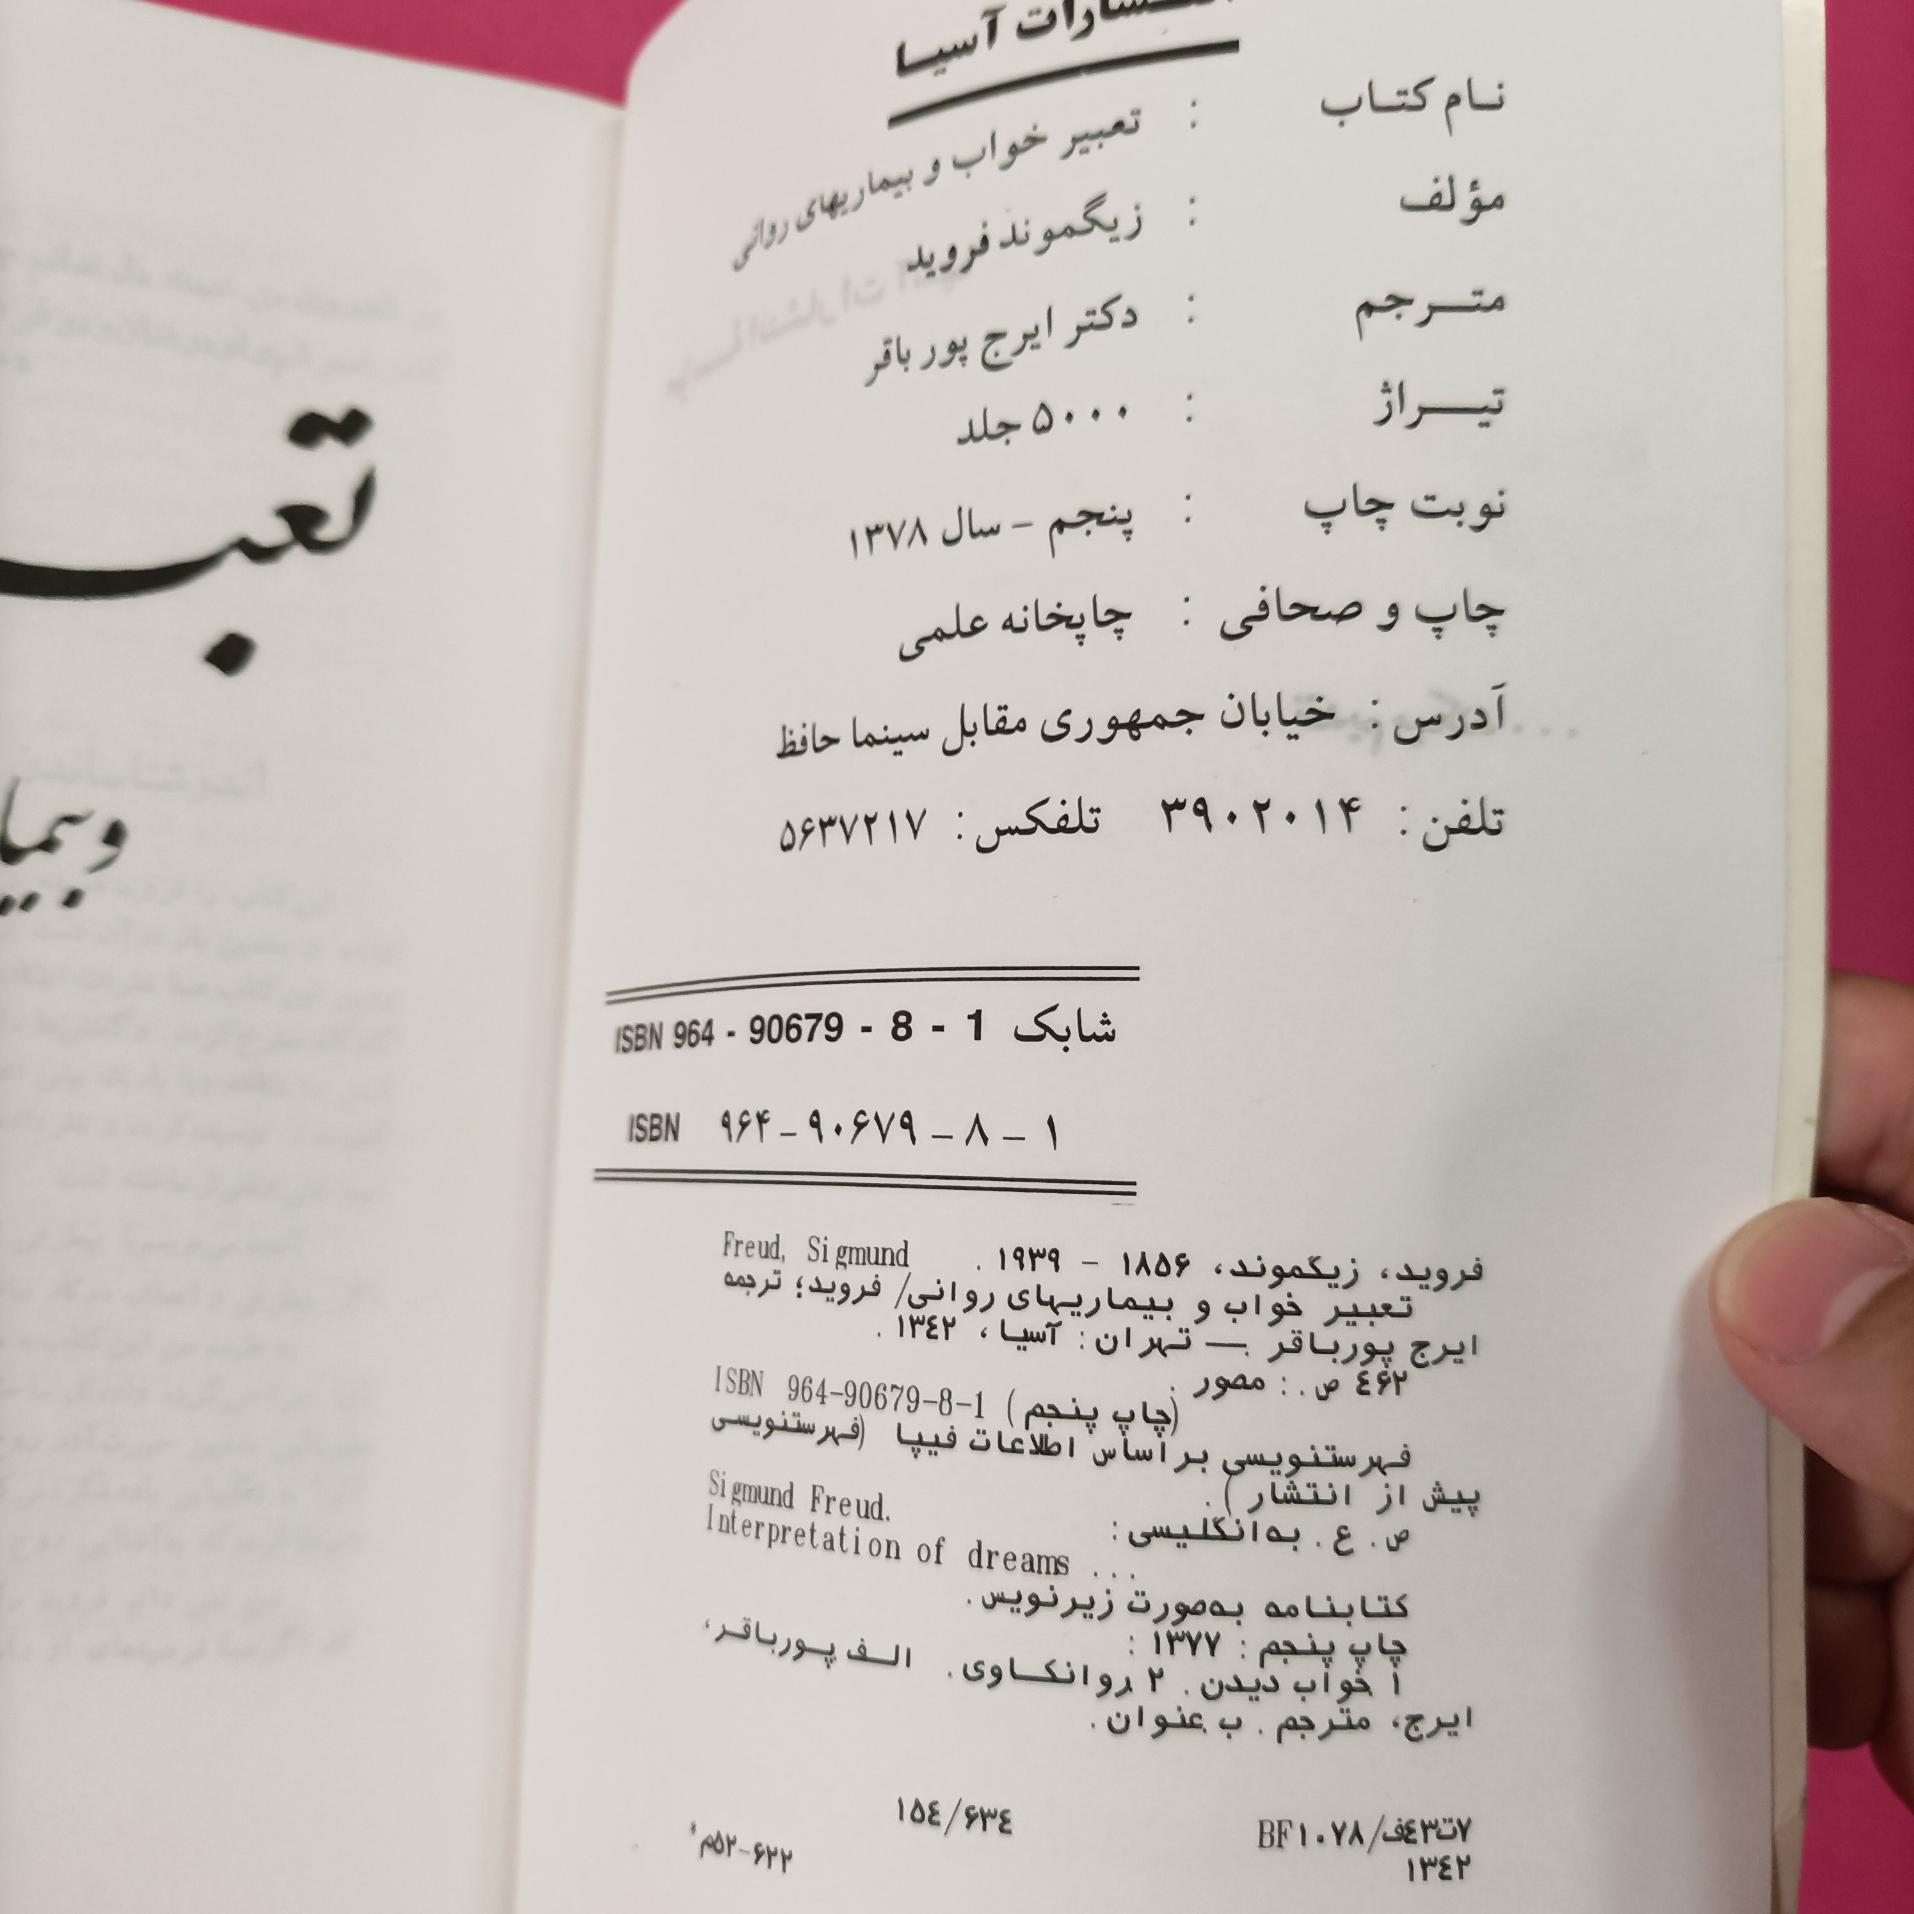 انتشارات آسیا
نام کتاب : تعبیر خواب و بیماریهای روانی
مؤلف : زیگموند فروید
مترجم : دکتر ایرج پور باقر
تیراژ : ۵۰۰۰ جلد
نوبت چاپ : پنجم – سال ۱۳۷۸
چاپ و صحافی : چاپخانه علمی
آدرس : خیابان جمهوری مقابل سینما حافظ
تلفن : ۳۹۰۲۰۱۴ تلفکس : ۵۶۳۷۲۱۷
شابک ISBN 964 - 90679 - 8 - 1
ISBN ۹۶۴–۹۰۶۷۹–۸–۱
فروید، زیگموند، ۱۸۵۶ - ۱۹۳۹ . Freud, Sigmund
تعبیر خواب و بیماریهای روانی/ فروید؛ ترجمه
ایرج پورباقر .— تهران: آسیا، ۱۳٤۲ .
٤۶۲ ص . : مصور .
ISBN 964-90679-8-1 (چاپ پنجم)
فهرستنویسی براساس اطلاعات فیپا (فهرستنویسی
پیش از انتشار ) .
ص . ع . به‌انگلیسی: Sigmund Freud.
Interpretation of dreams ...
کتابنامه به‌صورت زیرنویس.
چاپ پنجم : ۱۳۷۷ :
۱ خواب دیدن . ۲ روانکاوی . الف پورباقر،
ایرج، مترجم . ب عنوان .
۷ت٤۳ف/BF۱۰۷۸
۱۳٤۲
۱۵٤/۶۳٤
۵۲-۶۲۲م*
تعب
وبیما